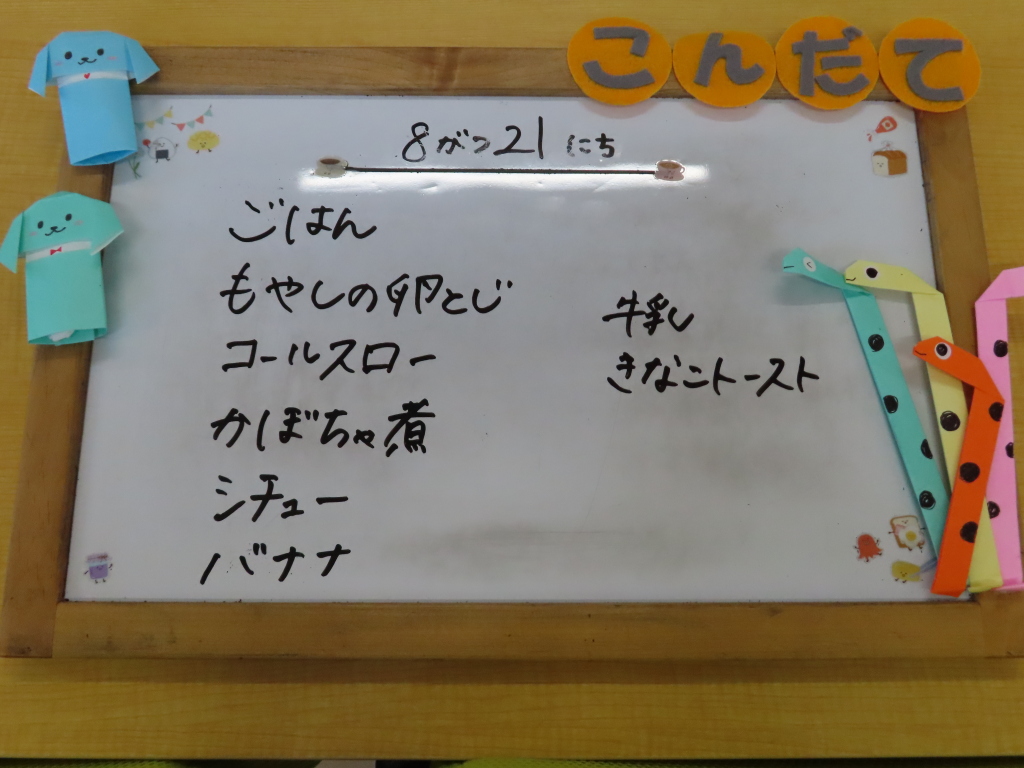 こんだて
8がつ21にち
ごはん
もやしの卵とじ
コールスロー
かぼちゃ煮
シチュー
バナナ
牛乳
きなこトースト